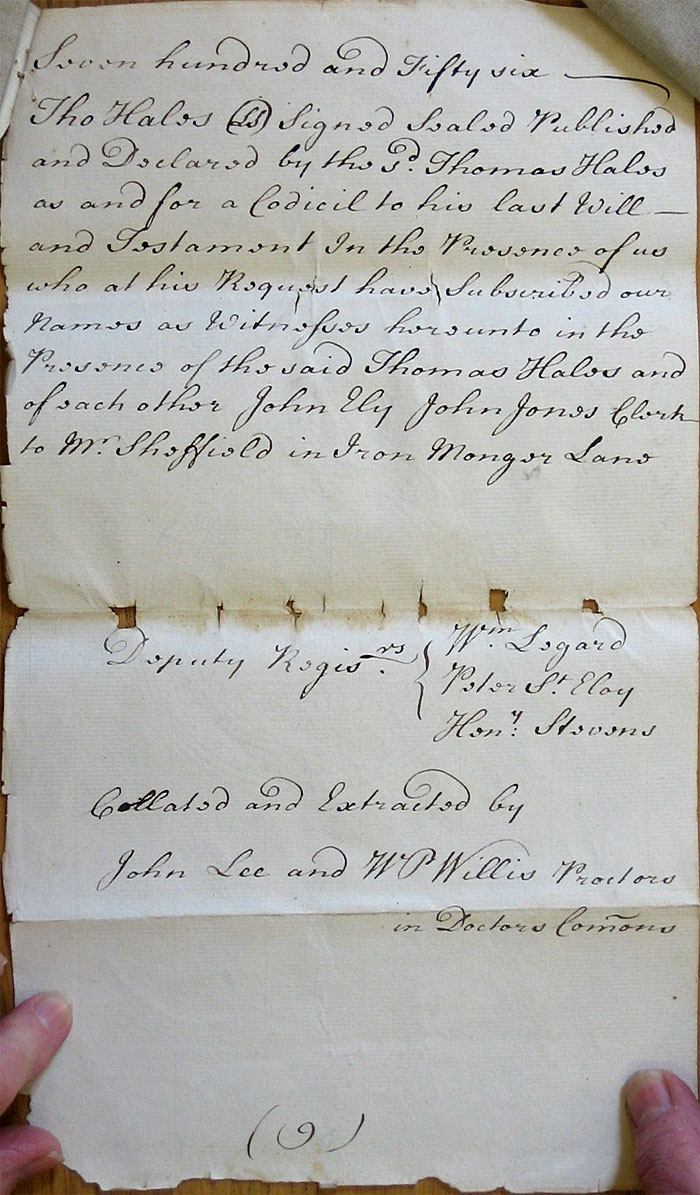 Seven hundred and Fifty six
Tho Hales (LS) Signed Sealed Published
and Declared by the sd. Thomas Hales
as and for a Codicil to his last Will
and Testament In the Presence of us
who at his Request have Subscribed our
Names as Witnesses hereunto in the
Presence of the said Thomas Hales and
of each other John Ely John Jones Clerk
to Mr. Sheffield in Iron Monger Lane
Deputy Regis.rs
Wm. Legard
Peter St. Eloy
Heny: Stevens
Collated and Extracted by
John Lee and WP Willis Proctors
in Doctors Com̃ons
(9)